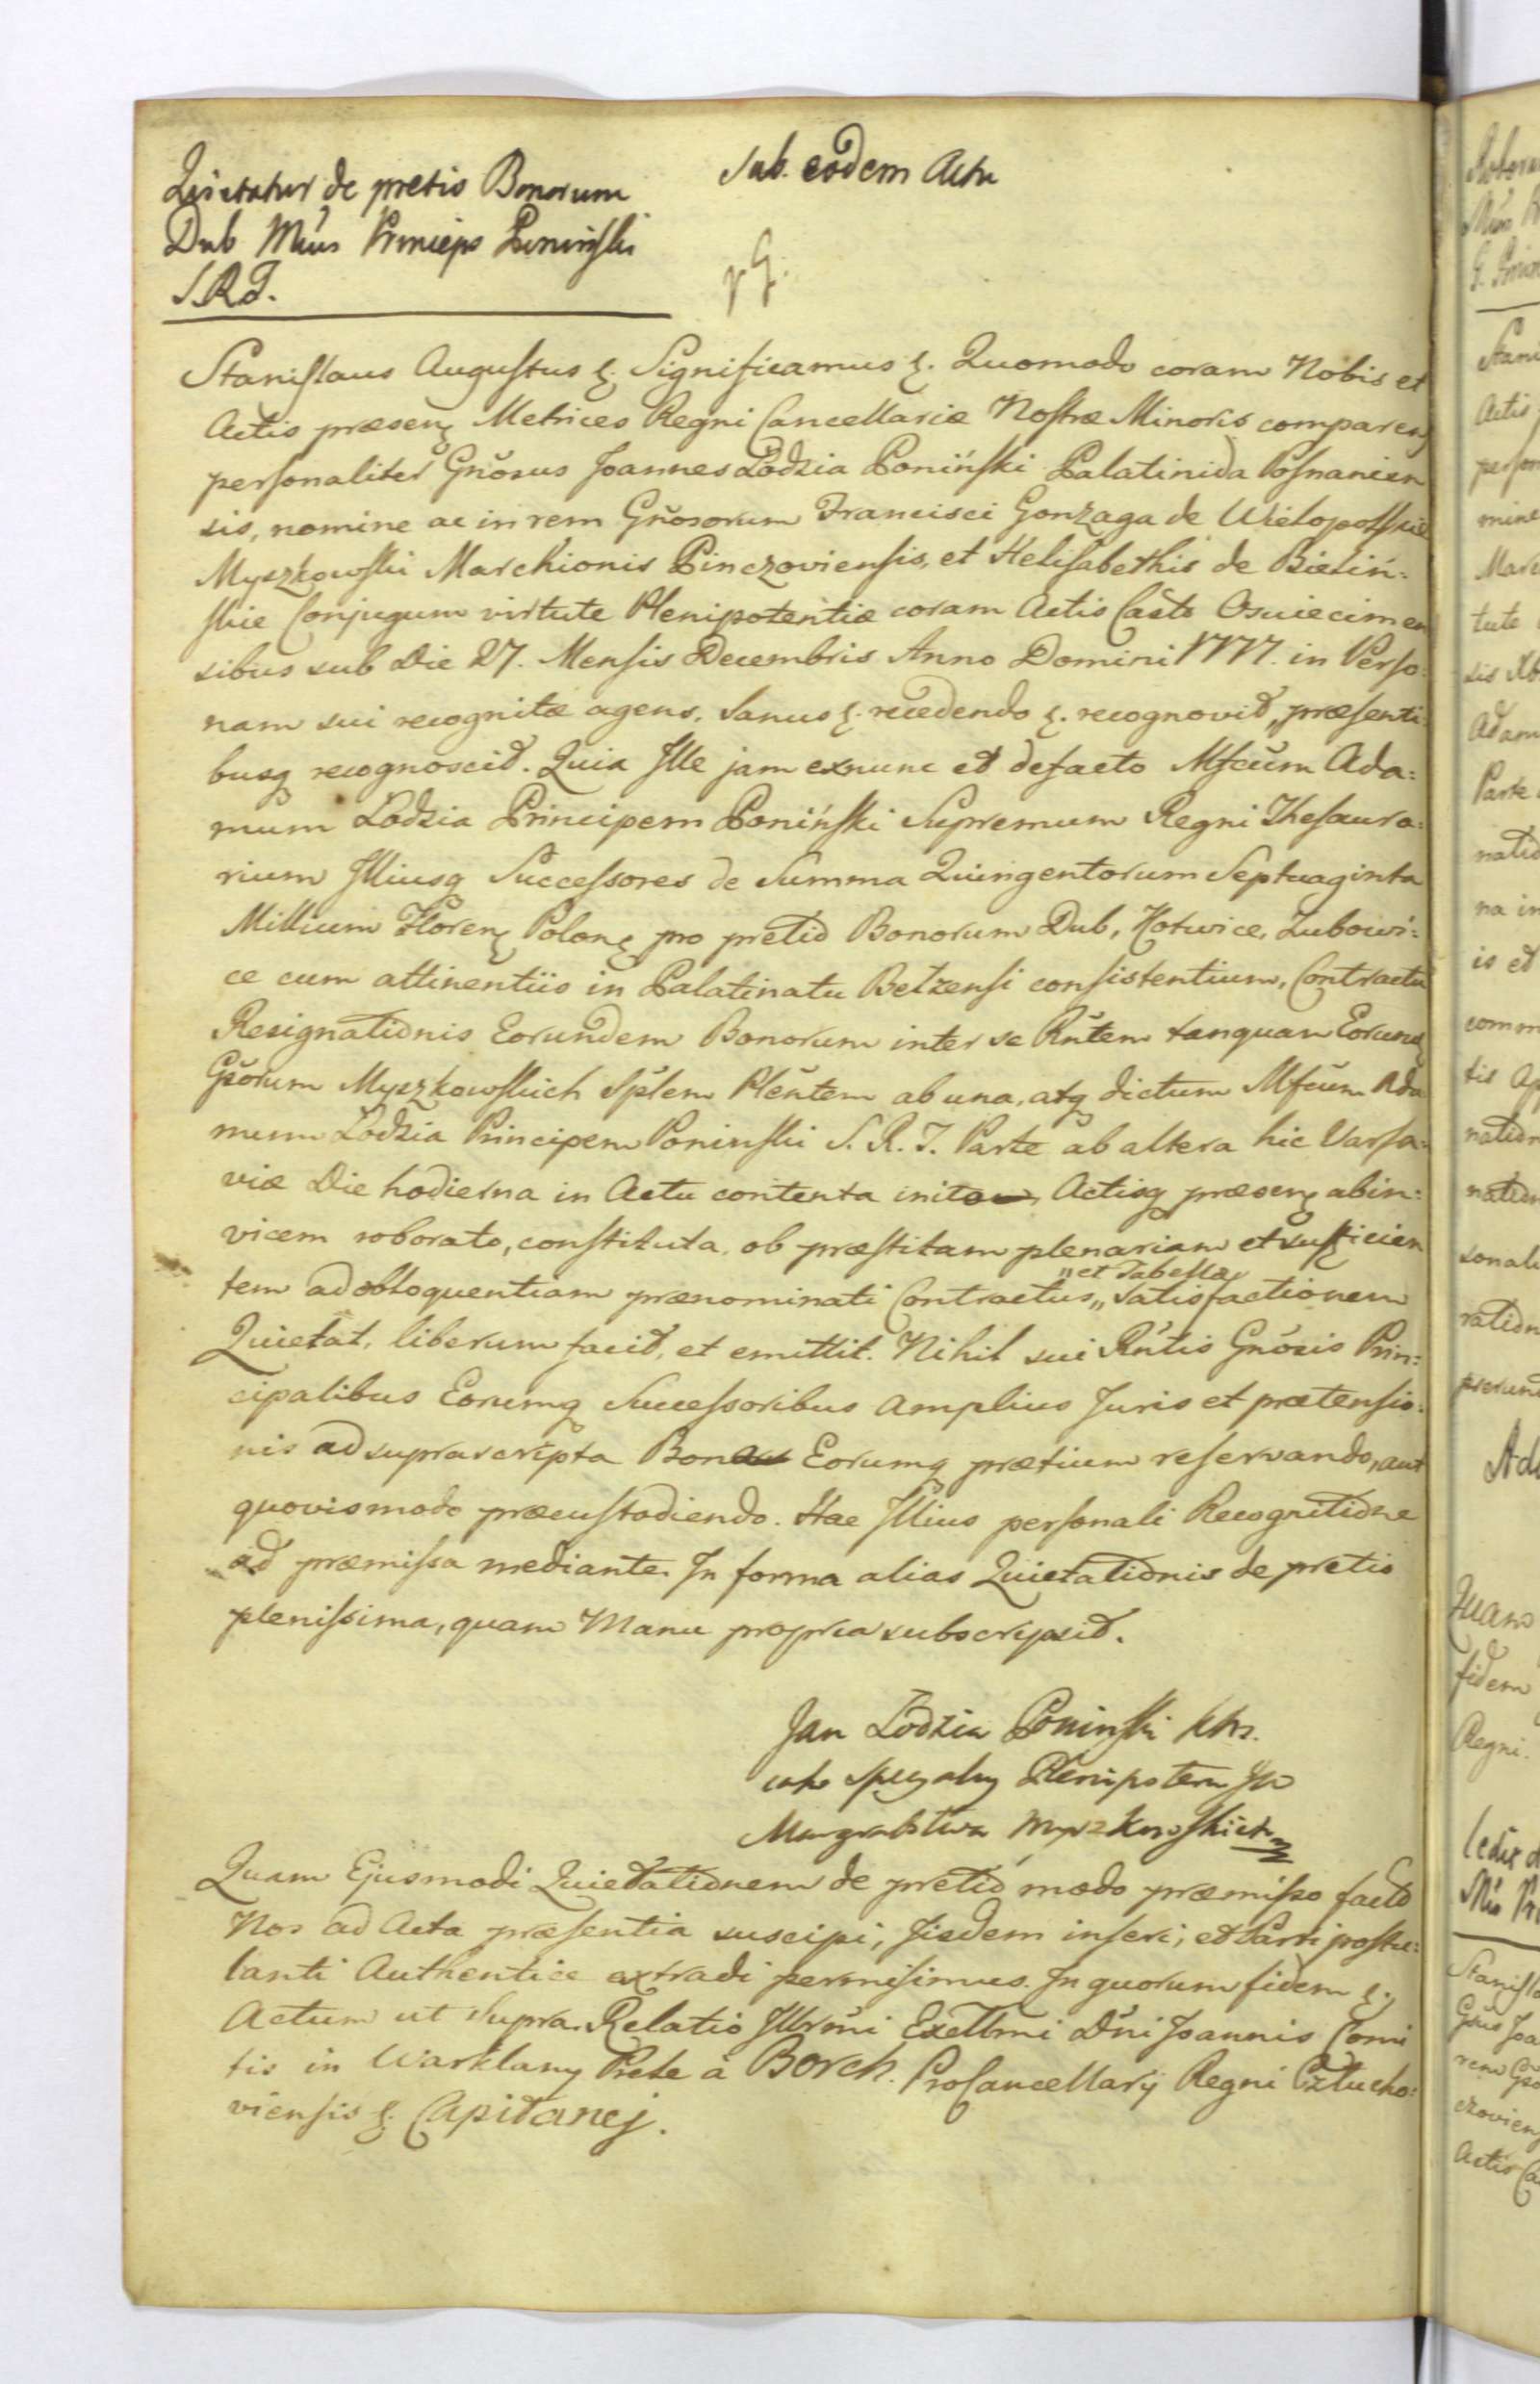 Quietatur de pretio Bonorum
Dub Mcus Princeps Poninski
S.R.I.
Sub eodem Actu
Stanislaus Augustus &. Significamus &. Quomodo coram Nobis et
Actis præsen. Metrices Regni Cancellariæ Nostræ Minoris comparens
personaliter Gnosus Joannes Łodzia Poniński Palatinida Posnanien
sis, nomine ac in rem Gnosorum Francisci Gonzaga de Wielopolskie
Myszkowski Marchionis Pinczoviensis, et Helisabethis de Bieliń:
skie Conjugum virtute Plenipotentiæ coram Actis Castr Osviecimen
sibus sub Die 27. Mensis Decembris Anno Domini 1777. in Perso:
nam sui recognitæ agens. Sanus &. recedendo &. recognovit, præsenti:
busq recognoscit. Quia Ille jam exnunc et defacto Mfcum Ada:
mum Łodzia Principem Poniński Supremum Regni Thesaura:
rium Illiusq Successores de Summa Quingentorum Septuaginta
Millium Floren. Polon. pro pretio Bonorum Dub, Kotwice, Lubowi:
ce cum attinentiis in Palatinatu Belzensi consistentium, Contractu
Resignationis Eorundem Bonorum inter se Rntem tanquam Eorund
Gsorum Myszkowskich Splem Plentem ab una, atq dictum Mfcum Ada
mum Łodzia Principem Poninski S. R. I. Parte ab altera hic Varsa:
viæ Die hodierna in Actu contenta inito Actisq præsen. abin:
vicem roborato, constituta, ob præstitam plenariam et sufficien
tem ad obloquentiam prænominati Contractus „et Tabellæ„ Satisfactionem
Quietat, liberum facit, et emittit. Nihil sui Rntis Gnosis Prin:
cipalibus Eorumq Successoribus amplius Juris et prætensio:
nis ad suprascripta Bona Eorumq prætium reservando, aut
quovismodo præcustodiendo. Hac Illius personali Recognitione
ad præmissa mediante. In forma alias Quietationis de pretio
plenissima, quam Manu propria subscripsit.
Jan Łodzia Poninski
iako Plenipotent
Margrabstwa Myszkowskich
Quam Ejusmodi Quietationem de pretio modo præmisso facto
Nos ad Acta præsentia suscipi, Iisdem inseri, et Parti postu:
lanti Authentice extradi permisimus. In quorum fidem &.
Actum ut supra. Relatio Illrmi Excellmi Dni Joannis Comi
tis in Warklany Prele à Borch. ProCancellarij Regni Człucho:
viensis &. Capitanej.